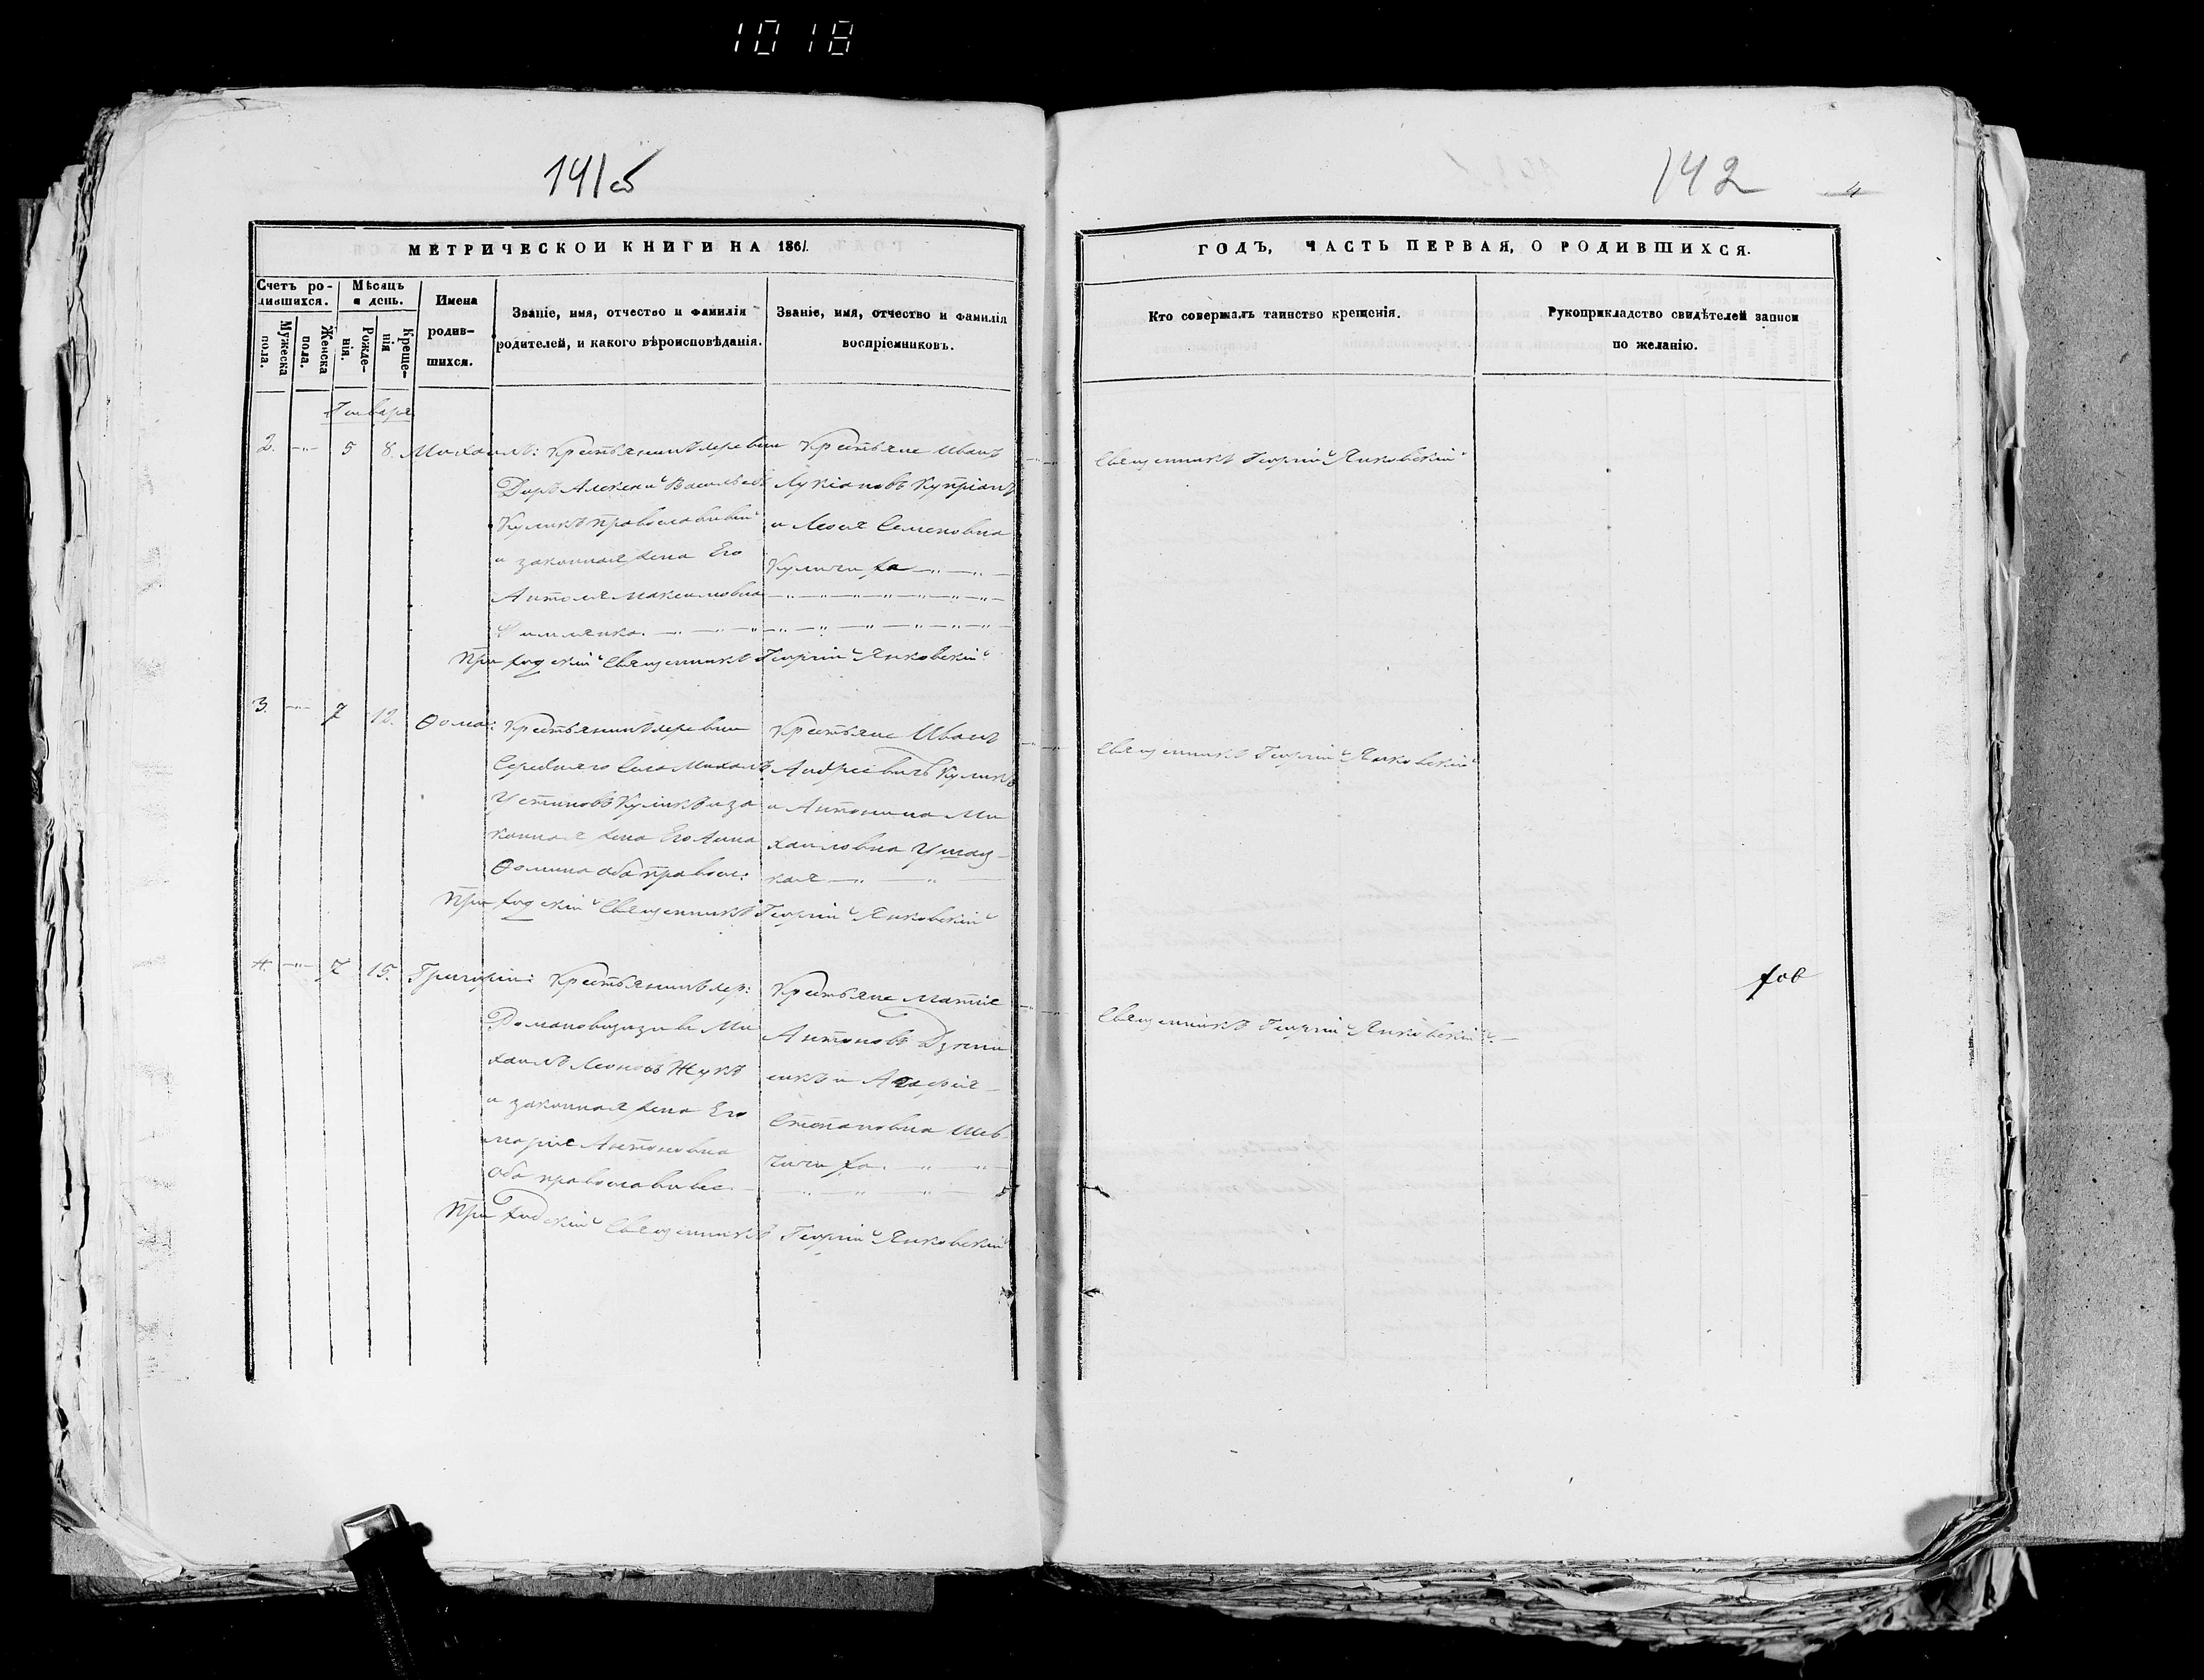 1018
141об
142
4
МЕТРИЧЕСКОЙ КНИГИ НА 1861.
ГОДЪ, ЧАСТЬ ПЕРВАЯ, О РОДИВШИХСЯ.
Счетъ ро-
дившихся.
Мужеска
пола.
Женска
пола.
Мѣсяцъ
и день.
Рожде-
нія.
Креще-
нія
Имена
родив-
шихся.
Званіе, имя, отчество и фамилія
родителей, и какого вѣроисповѣданія.
Званіе, имя, отчество и фамилія
воспріемниковъ.
Кто совершалъ таинство крещенія.
Рукоприкладство свидѣтелей записи
по желанію.
Января
2. —„— 5 8. Михаилъ: Крестьянинъ деревни
Алексей Васильевъ
Куликъ православный
и законная жена Его
Максимовна
Крестьяне Иванъ
Лукіановъ Купріанъ
и Семеновна
Куличиха
Священникъ Георгій Янковскій
Приходскій Священникъ Георгій Янковскій
3. —„— 7 12. Ѳома: Крестьянинъ деревни
Середняго Села Михаилъ
Устиновъ Куликъ и за
конная жена Его Анна
Ѳомина оба правосл:
Крестьяне Иванъ
Андреевичъ Куликъ
и Антонина Ми
хаиловна
кая
Священникъ Георгій Янковскій
Приходскій Священникъ Георгій Янковскій
4. —„— 7 15. Григорій: Крестьянинъ дер:
Ми
хаилъ Леоновъ Жукъ
и законная жена Его
Марія Антоновна
Оба православные
Крестьяне Матѳіе
Антоновъ
и Агафія
Степановна Шев
чиха
Священникъ Георгій Янковскій
Приходскій Священникъ Георгій Янковскій